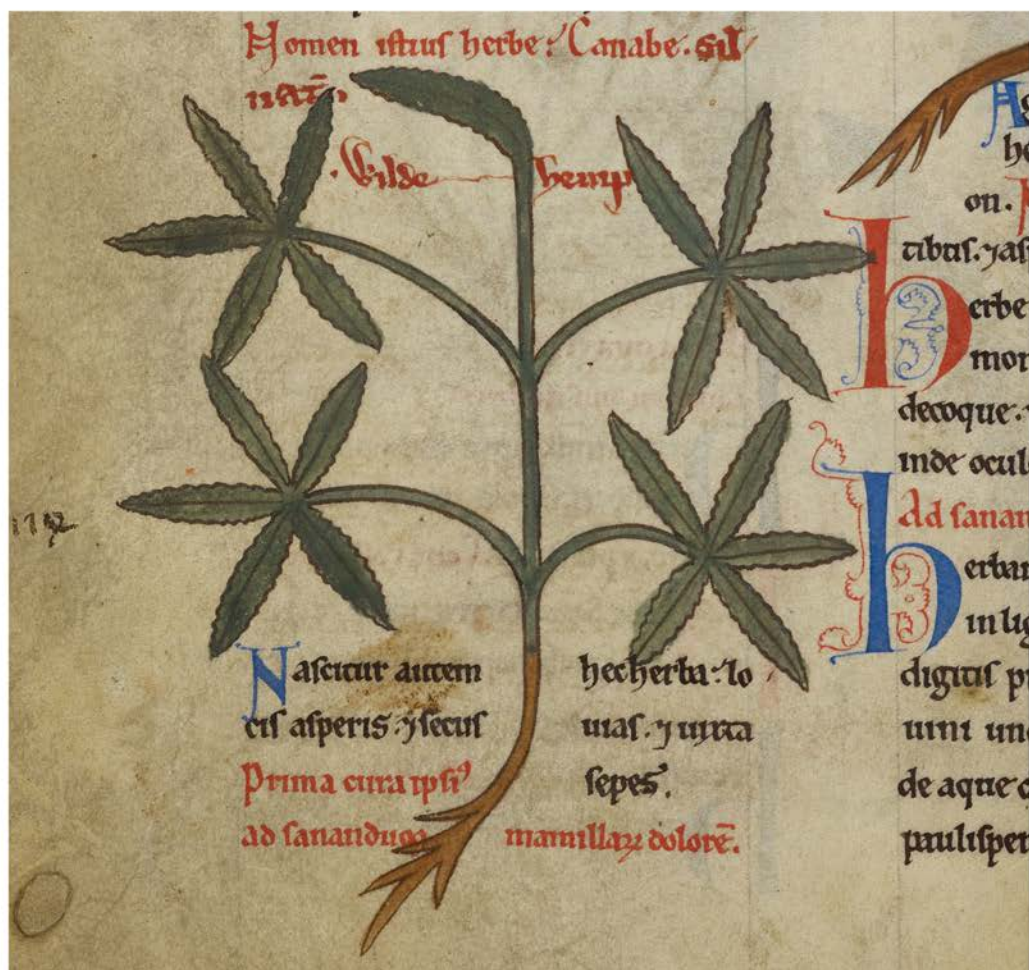 Nomen istius herbe: Canabe. sil
uatc̄,
.Wilde hemp
Nascitur autem hec herba: lo
cis asperis. ⁊ secus uias. ⁊ iuxta
Prima cura ipsi⁹ sepes.
ad sanandum mamillaꝝ dolorē.
A
he
on.
tibus. ⁊ as
herbe
mon
decoque.
inde ocul
Ad sanan
herbam
in lig
digitis p
uini unc
de aque c
paulisper